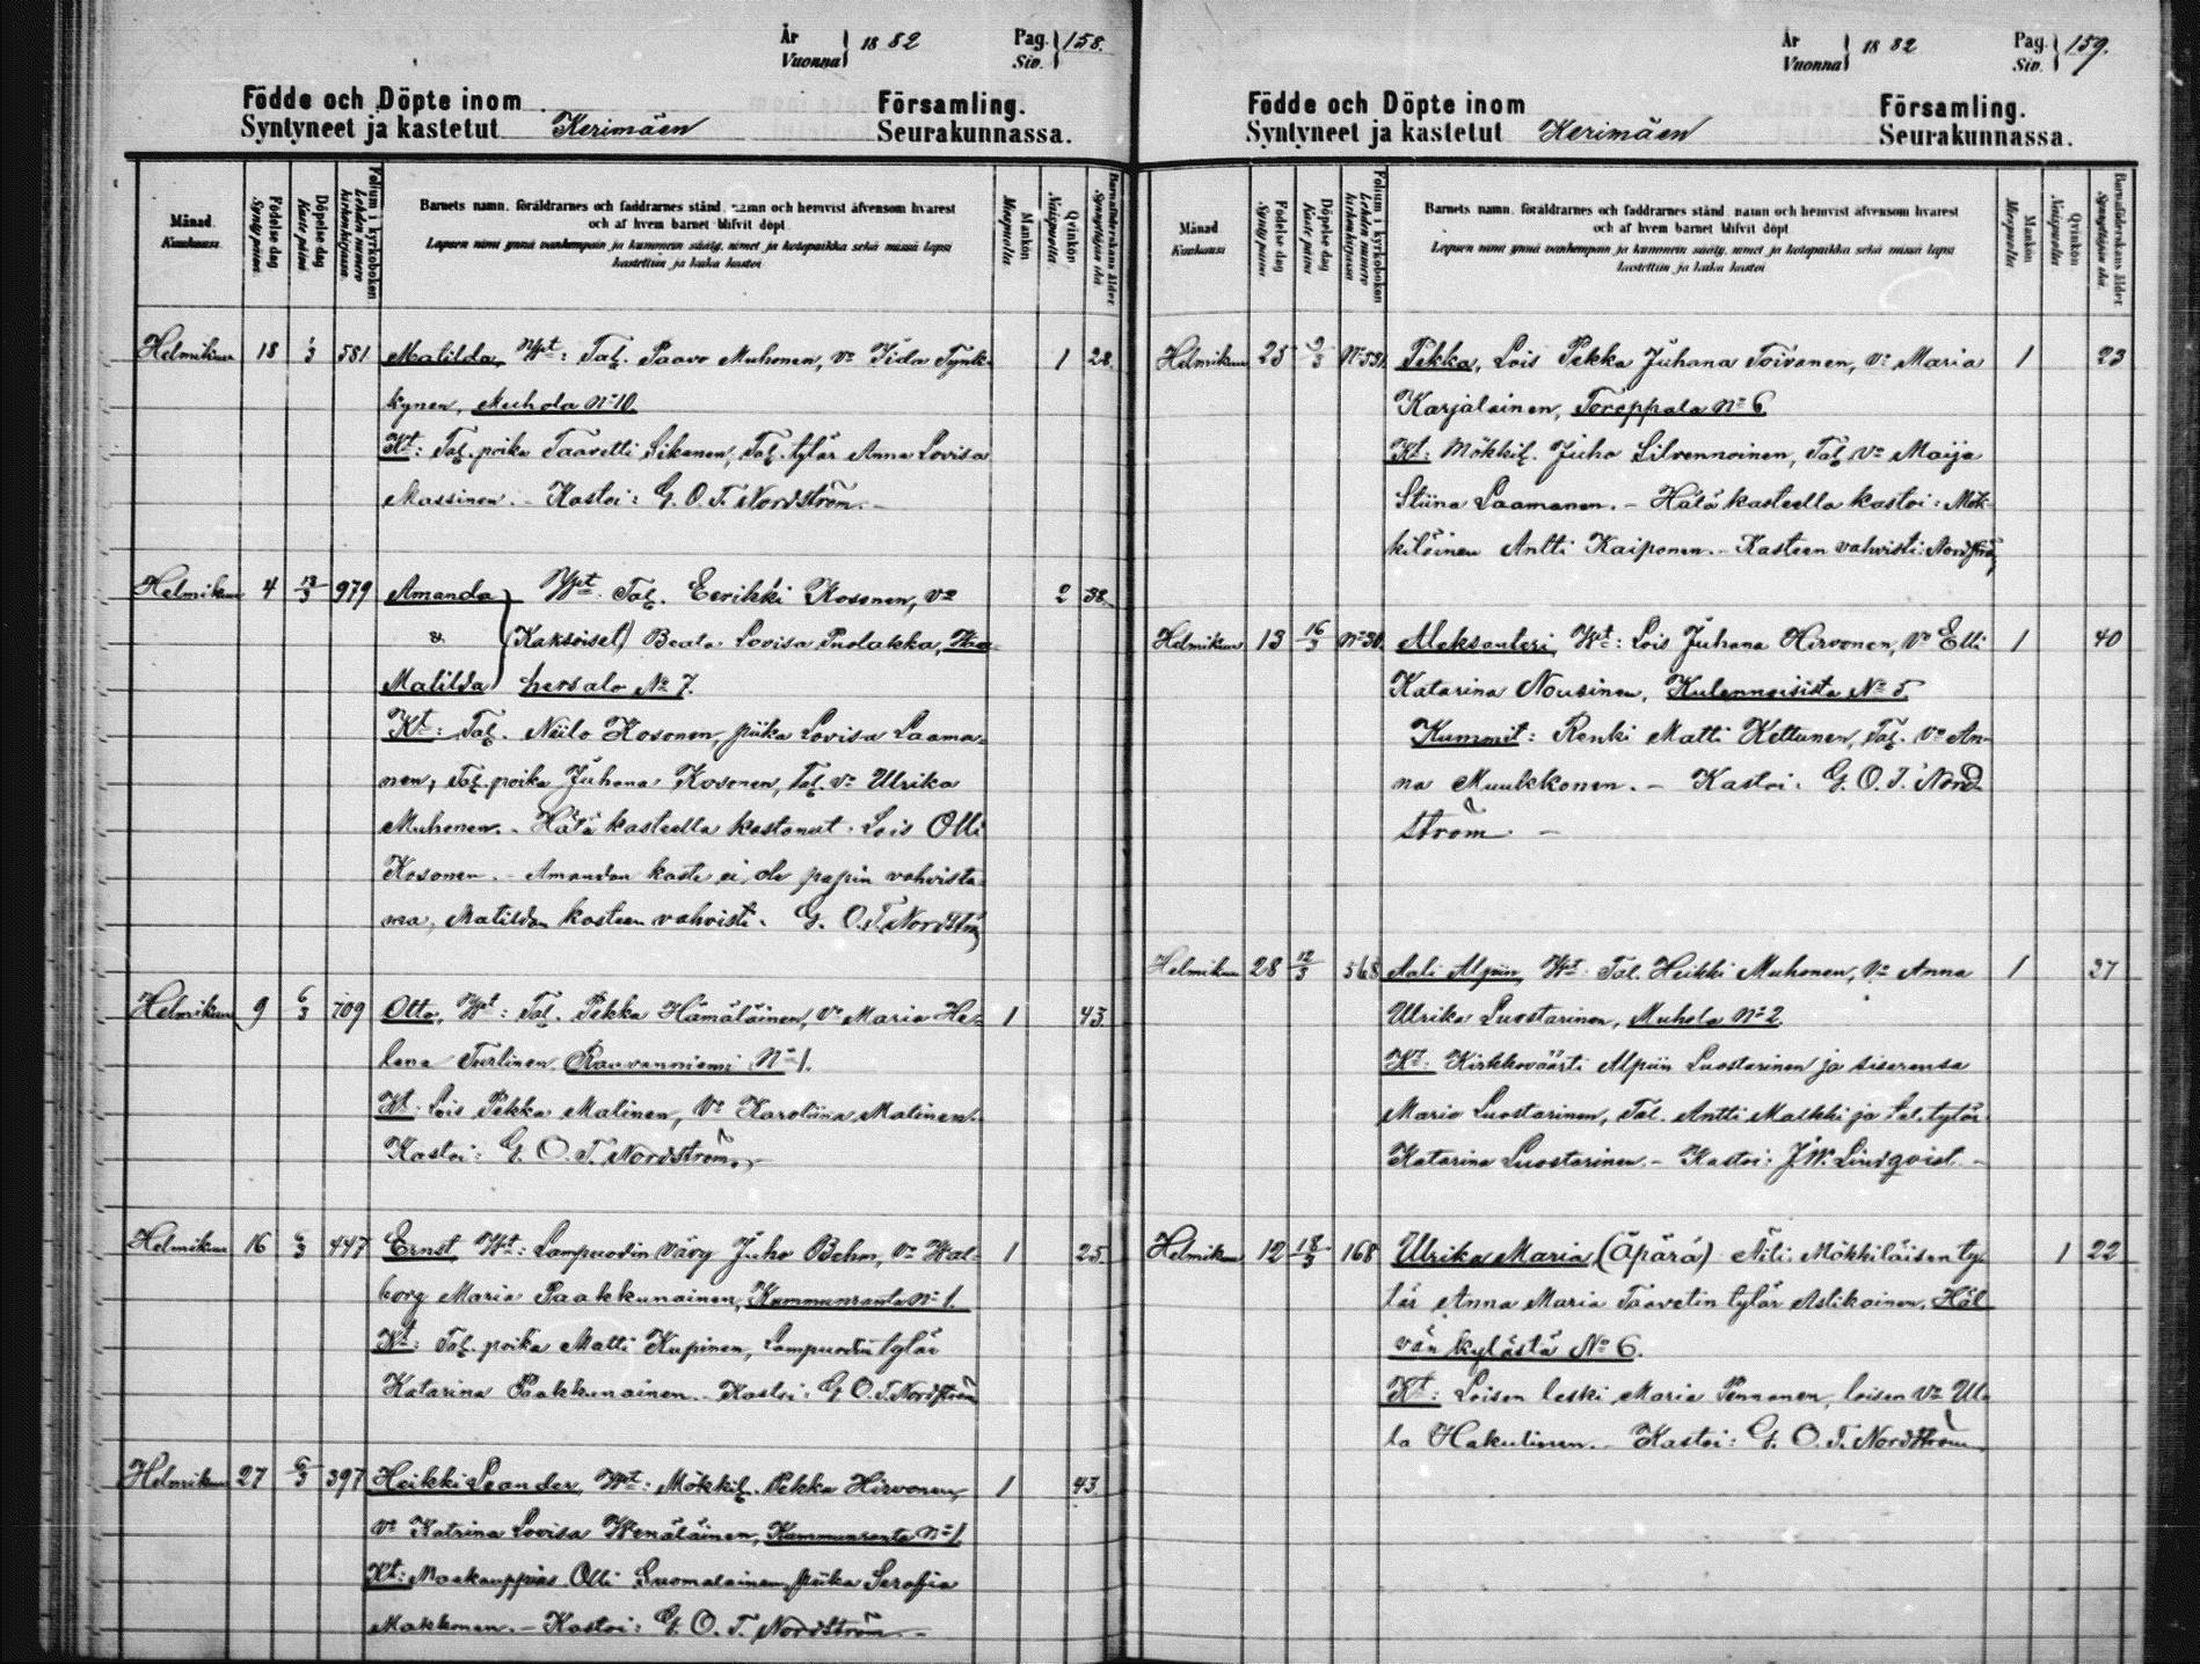 År Vuonna 1882 Pag. Siv. 158.
Födde och Döpte inom Församling.
Syntyneet ja kastetut Kerimäen Seurakunnassa.
Månad Kuukausi
Födelse dag Synty päivä
Döpelse dag Kaste päivä
Folium i kyrkoboken Lehden numero kirkonkirjassa
Barnets namn, föräldrarnes och faddrarnes stånd, namn och hemvist äfvensom hvarest
och af hvem barnet blifvit döpt
Lapsen nimi ynnä vanhempain ja kummein sääty, nimet ja kotopaikka sekä missä lapsi
kastettiin ja kuka kastoi
Mankön Miespuolia
Qvinkön Naispuolia
Barnaföderskans ålder Synnyttäjän ikä
Helmikuu 18 1/3 581 Matilda, Wt: Tal. Paavo Muhonen, Vo Iida Tynk- 1 28.
kynen, Muhola No 10
Kt: Tal. poika Taavetti Sikanen, Tal. tytär Anna Lovisa
Massinen. - Kastoi: G. O. T. Nordström. -
Helmikuu 4 13/3 979 Amanda Wt Tal. Eerikki Kosonen, Vo 2 38.
& (Kaksoiset) Beata Lovisa Puolakka,
Matilda hersalo No 7.
Kt: Tal. Niilo Kosonen, piika Lovisa Laama-
nen, Tal. poika Juhana Kosonen, Tal. Vo Ulrika
Muhonen. - Hätä kasteella kastanut: Lois Olli
Kosonen. - Amandan kaste ei ole papin vahvista-
ma, Matildan kasteen vahvisti. G. O. T. Nordström
Helmikuu 9 6/3 709 Otto, Wt: Tal. Pekka Hämäläinen, Vo Maria He- 1 43.
lena Turtinen, Raavanniemi No 1.
Kt: Lois Pekka Malinen, Vo Karoliina Malinen.
Kastoi: G. O. T. Nordström. -
Helmikuu 16 6/3 447 Ernst Wt: Lampuodin vävy Juho Behm, Vo Wal- 1 25.
borg Maria Paakkunainen, Kummunranta No 1.
Kt: Tal. poika Matti Kupinen, Lampuodin tytär
Katarina Paakkunainen. - Kastoi: G. O. T. Nordström
Helmikuu 27 6/3 397 Heikki Leander, Wt: Mökkil. Pekka Hirvonen, 1 43.
Vo Katrina Lovisa Wenäläinen, Kummunranta No 1
Kt: Maakauppias Olli Luomalainen, piika Serafia
Makkonen. - Kastoi: G. O. T. Nordström. -
År Vuonna 1882 Pag. Siv. 159.
Födde och Döpte inom Församling.
Syntyneet ja kastetut Kerimäen Seurakunnassa.
Månad Kuukausi
Födelse dag Synty päivä
Döpelse dag Kaste päivä
Folium i kyrkoboken Lehden numero kirkonkirjassa
Barnets namn, föräldrarnes och faddrarnes stånd, namn och hemvist äfvensom hvarest
och af hvem barnet blifvit döpt
Lapsen nimi ynnä vanhempain ja kummein sääty, nimet ja kotopaikka sekä missä lapsi
kastettiin ja kuka kastoi
Mankön Miespuolia
Qvinkön Naispuolia
Barnaföderskans ålder Synnyttäjän ikä
Helmikuu 25 9/3 No 531. Pekka, Lois Pekka Juhana Toivonen, Vo Maria 1 23
Karjalainen, Toroppala No 6
Kt: Mökkil. Juho Silvennoinen, Tal. Vo Maija
Stiina Laamanen. - Hätä kasteella kastoi: Mök-
kiläinen Antti Kaiponen. - Kasteen vahvisti: Nordström
Helmikuu 13 16/3 No 30. Aleksanteri, Wt: Lois Juhana Hirvonen, Vo Elli 1 40
Katarina Nousinen, Kulennoisista No 5
Kummit: Renki Matti Kettunen, Tal. Vo An-
na Muukkonen. - Kastoi: G. O. T. Nord-
ström. -
Helmikuu 28 12/3 568 Aali Alpiin, Wt: Tal. Heikki Muhonen, Vo Anna 1 27
Ulrika Luostarinen, Muhola No 2.
Kt: Kirkkoväärti Alpiin Luostarinen ja sisarensa
Maria Luostarinen, Tal. Antti Malkki ja tal. tytär
Katarina Luostarinen. - Kastoi: J. W. Lindqvist. -
Helmikuu 12 18/3 168 Ulrika Maria (Äpärä) Äiti: Mökkiläisen ty- 1 22
tär Anna Maria Taavetin tytär Astikainen, Häl-
vän kylästä No 6.
Kt: Loisen leski Maria Pennanen, loisen Vo Ul-
la Hakulinen. - Kastoi: G. O. T. Nordström.